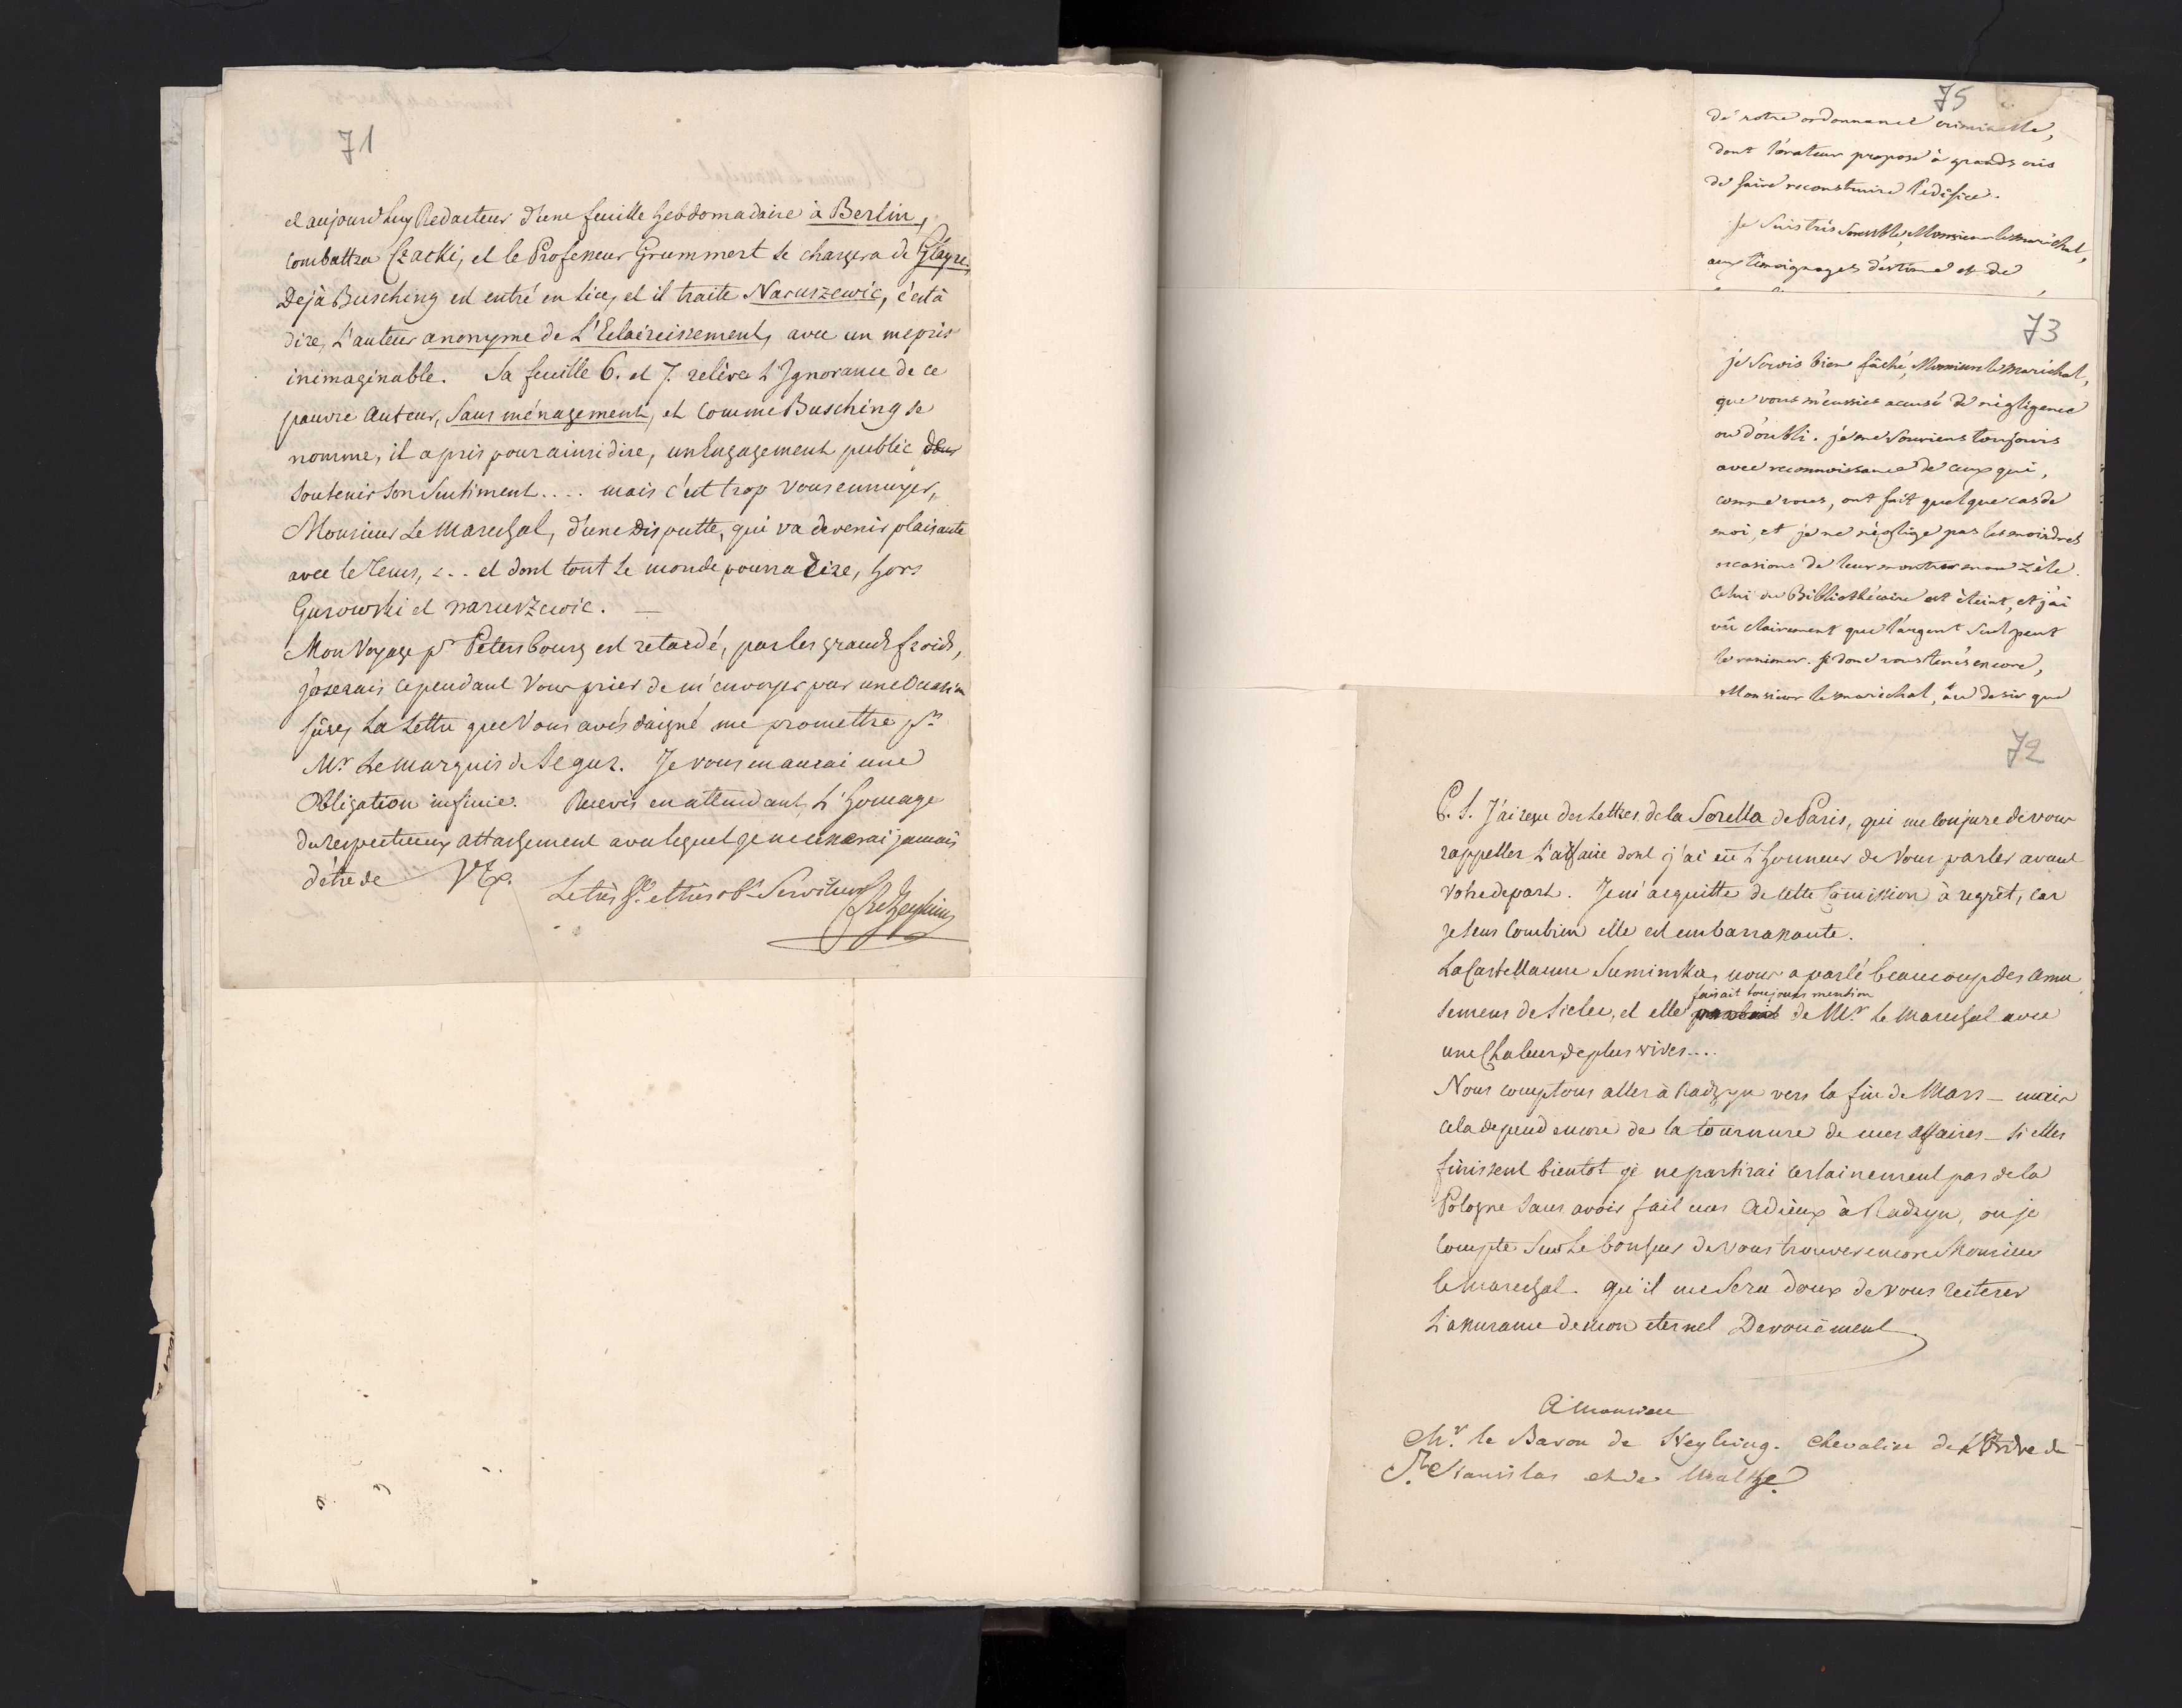 71
et aujourd'huy Redacteur d'une feuille hebdomadaire à Berlin,
combattra Czacki, et le Professeur Grummert se chargera de Glayre.
Dejà Busching est entré en lice, et il traite Naruszewic, c'est à
dire, L'auteur anonyme de L'Eclaircissement, avec un mepris
inimaginable. Sa feuille 6. et 7. relève L'Ignorance de ce
pauvre Auteur, Sans ménagement, et comme Busching se
nomme, il a pris pour ainsi dire, un Engagement public de
soutenir son Sentiment.... mais c'est trop vous ennuyer,
Monsieur Le Marechal, d'une Disputte, qui va devenir plaisante
avec le Tems, ... et dont tout le monde pourra Dire, hors
Gurowski et Naruszewic. —
Mon Voyage pr Petersbourg est retardé, par les grands froids,
j'oserais cependant Vous prier de m'envoyer par une Occasion
sûre, La Lettre que Vous avés daigné me promettre pr
Mr Le Marquis de Segur. Je vous en aurai une
Obligation infinie. Recevés en attendant, L'homage
du respectueux attachement avec lequel je ne cesserai jamais
d'être de VEx.
Le très h. et très ob. Serviteur
Heyking
75
de notre ordonnance criminelle,
dont l'orateur propose à grands cris
de faire reconstruire l'édifice.
Je suis très sensible, Monsieur le maréchal,
aux témoignages d'estime et de
73
je serois bien fâché, Monsieur le maréchal,
que vous m'eussiez accusé de négligence
ou d'oubli. je me souviens toujours
avec reconnoissance de ceux qui,
comme vous, ont fait quelque cas de
moi, et je ne néglige pas les moindres
occasions de leur montrer mon zèle.
Celui du Bibliothécaire est éteint, et j'ai
vû clairement que l'argent seul peut
le ranimer. si donc vous tenés encore,
Monsieur le maréchal, au desir que
72
P. S. J'ai reçu des Lettres de la Sorella de Paris, qui me conjure de vous
rappeller L'affaire dont j'ai eü L'honneur de Vous parler avant
votre depart. Je m'acquitte de cette Comission à regrêt, car
je sens combien elle est embarrassante.
La Castellanne Suminska, nous a parlé beaucoup des Amu
semens de Sielce, et elle faisait toujours mention de Mr. Le Marechal avec
une Chaleur de plus vives....
Nous comptons aller à Radzyn vers la fin de Mars — mais
cela depend encore de la tournure de mes affaires — si elles
finissent bientot je ne partirai certainement pas de la
Pologne sans avoir fait mes Adieux à Radzyn, ou je
compte sur Le bonheur de Vous trouver encore Monsieur
le Marechal. qu'il me Sera doux de vous reiterer
L'assurance de mon eternel Devouëment.
A Monsieur
Mr. le Baron de Heyking. Chevalier de L'Ordre de
St. Stanislas et de Malthe.